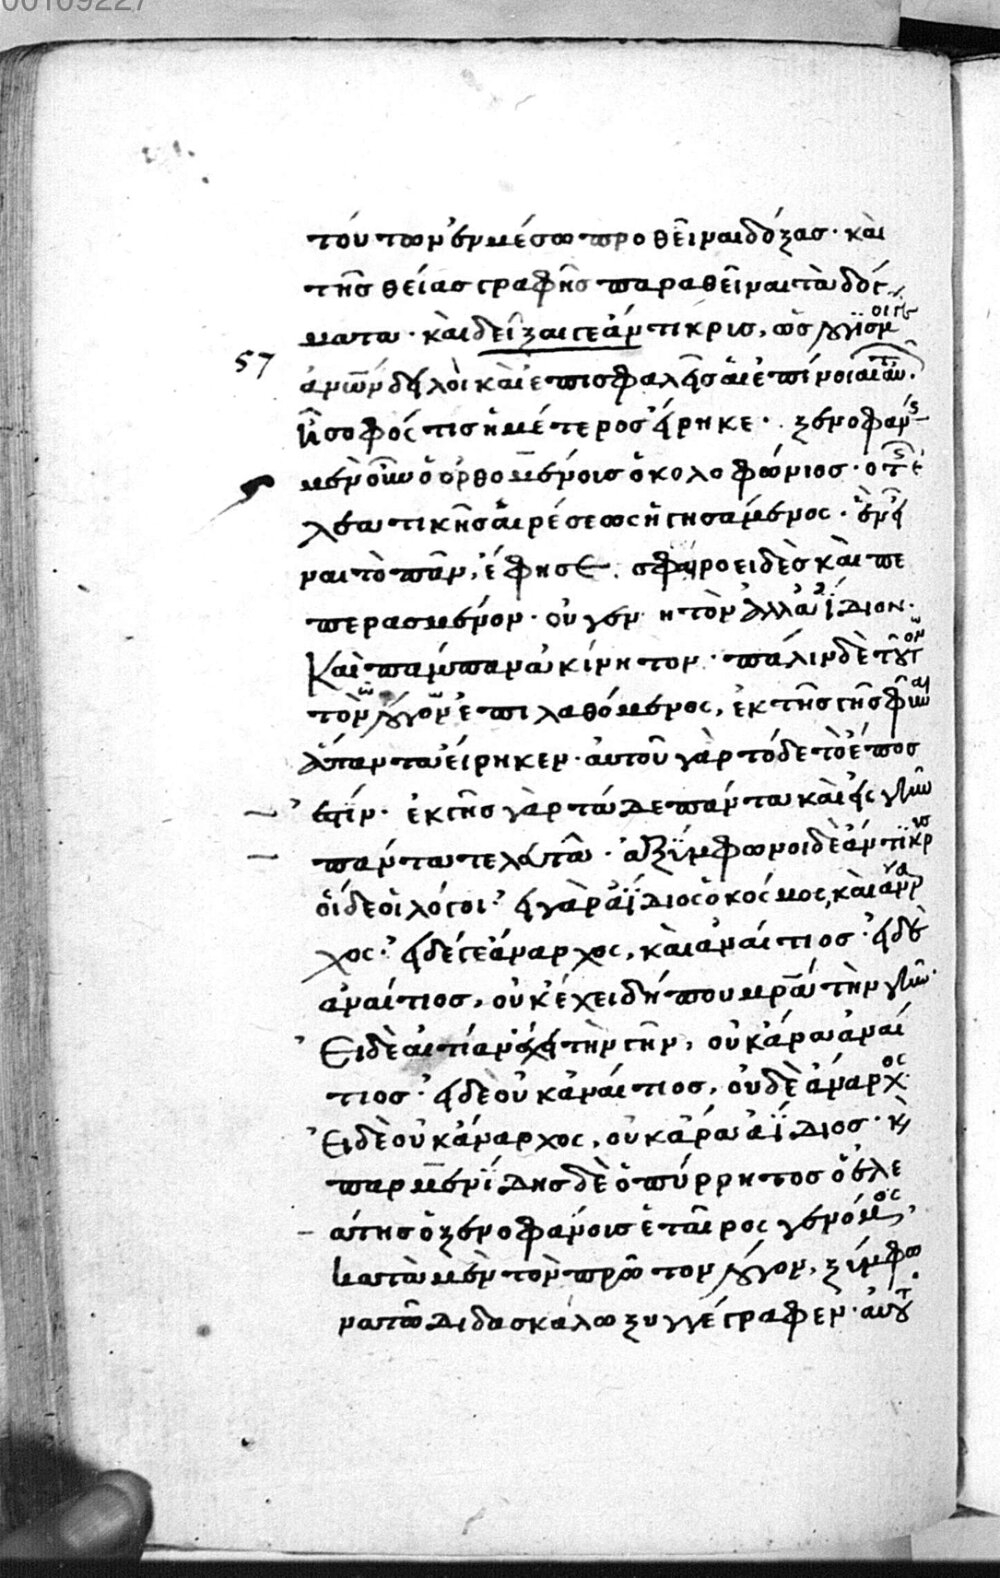 00109227
τούτων ἐν μέσω προθεῖναι δόξας· καὶ
τῆς θείας γραφῆς παραθεῖναι τὰ δόγ
ματα· καὶ δεῖξαι γε ἄντικρις, ὡς λογισμοὶ γὰρ
57
ἀνων δειλοὶ καὶ ἐπισφαλεῖς αἱ ἐπίνοιαι αὐτῶν.
ἧ σοφός τις ἡμέτερος εἴρηκε· ξενοφάνης
μὲν οὖν ὁ ὀρθομένοις ὁ κολοφώνιος· ὁ τῆς ἐ
λεατικῆς αἱρέσεως ἡγησάμενος· ἓν εἶ
ναι τὸ πᾶν, ἔφησε. σφαιροειδὲς καὶ πε
περασμένον· οὐ γενητὸν ἀλλ' ἀΐδιον.
Καὶ πάμπαν ἀκίνητον· πάλιν δὲ τούτων
τῶν λόγων ἐπιλαθόμενος, ἐκ τῆς γῆς φῦναι
ἅπαντα εἴρηκεν· αὐτοῦ γὰρ τόδε τὸ ἔπος
ἐστίν· ἐκ γῆς γὰρ τάδε πάντα καὶ εἰς γῆν
πάντα τελευτᾶ· ἀξύμφωνοι δὲ ἄντικρυς
οἵδε οἱ λόγοι· εἰ γὰρ ἀΐδιος ὁ κόσμος, καὶ ἄναρ
χος· εἰ δέ γε ἄναρχος, καὶ ἀναίτιος· εἰ δὲ
ἀναίτιος, οὐκ ἔχει δήπου μρᾶ τὴν γῆν.
Ει δὲ αἰτίαν ἔχει τὴν γῆν, οὐκ ἄρα ἀναί
τιος· εἰ δὲ οὐκ ἀναίτιος, οὐδὲ ἄναρχος.
Ει δὲ οὐκ ἄναρχος, οὐκ ἄρα ἀΐδιος· κ
παρμενίδης δὲ ὁ πύρρητος ὁ ἐλε
άτης ὁ ξενοφάνοις ἑταῖρος γενόμενος,
κατὰ μὲν τὸν πρῶτον λόγον, ξύμφω
να τῶ διδασκάλω ξυγγέγραφεν· αὐτοῦ